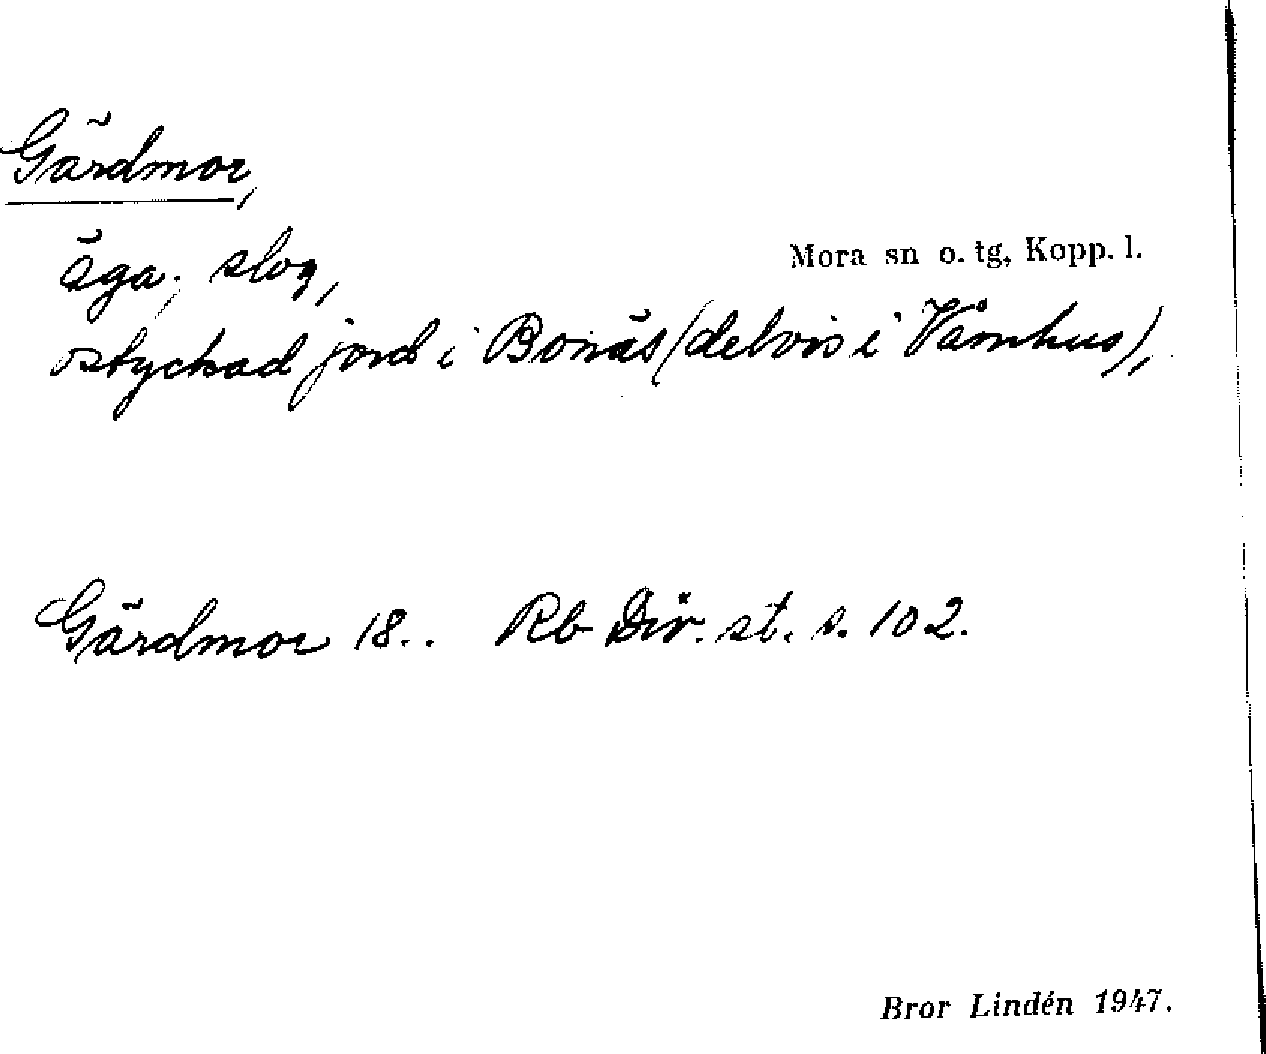 Gärdmor,
Mora sn o. tg, Kopp. l.
äga; slog,
ostyckad jord i Bonäs (delvis i Våmhus),
Gärdmor 18.. Rb Div. st. s. 102.
Bror Lindén 1947.